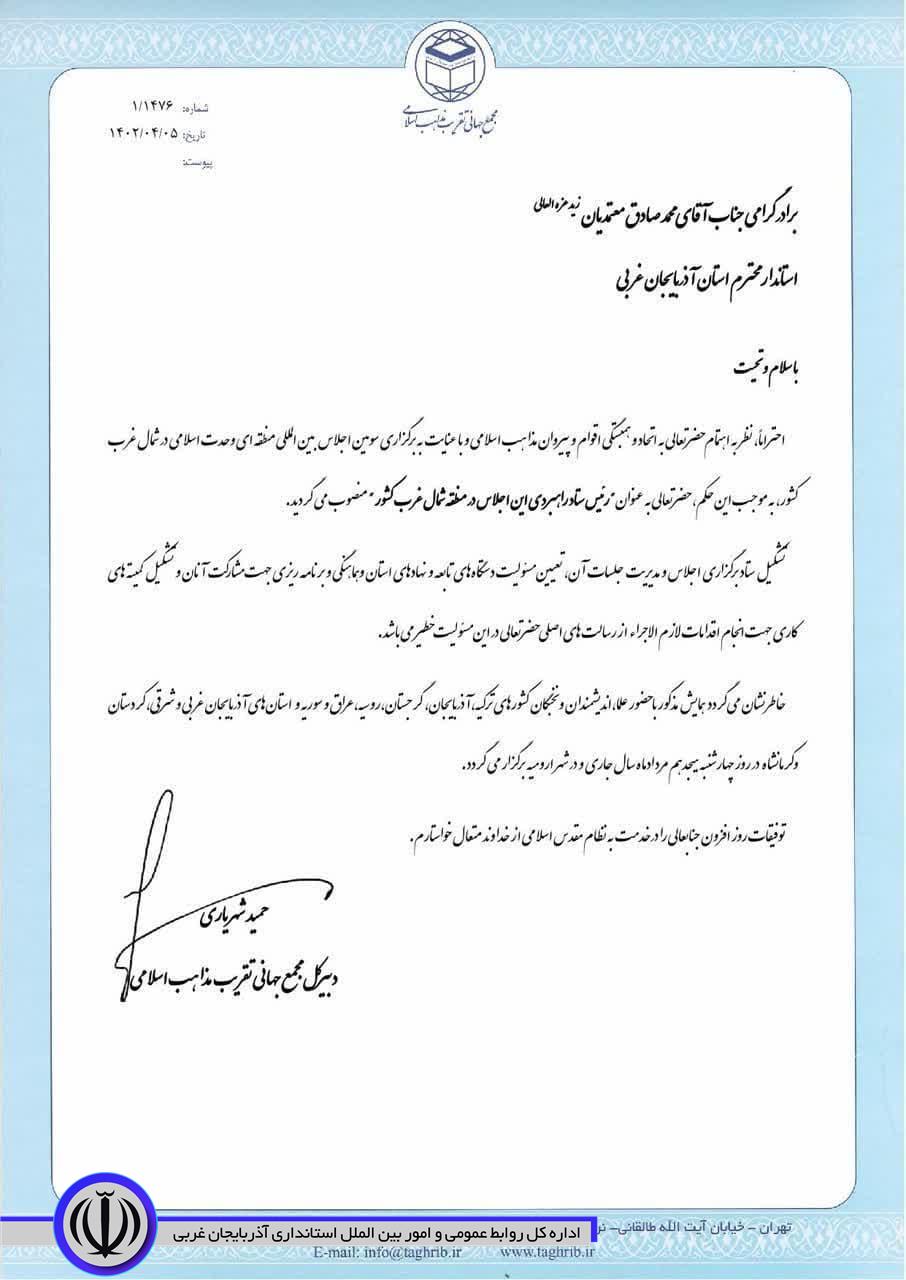 مجمع جهانی تقریب مذاهب اسلامی
شماره: ۱/۱۴۷۶
تاریخ: ۱۴۰۲/۰۴/۰۵
پیوست:
برادر گرامی جناب آقای محمد صادق معتمدیان زید عزه العالی
استاندار محترم استان آذربایجان غربی
با سلام و تحیت
احتراماً، نظر به اهتمام حضرتعالی به اتحاد و همبستگی اقوام و پیروان مذاهب اسلامی و با عنایت به برگزاری سومین اجلاس بین المللی منطقه ای وحدت اسلامی در شمال غرب
کشور، به موجب این حکم، حضرتعالی به عنوان "رئیس ستاد راهبردی این اجلاس در منطقه شمال غرب کشور" منصوب می گردید.
تشکیل ستاد برگزاری اجلاس و مدیریت جلسات آن، تعیین مسئولیت دستگاه های تابعه و نهادهای استان و هماهنگی و برنامه ریزی جهت مشارکت آنان و تشکیل کمیته های
کاری جهت انجام اقدامات لازم الاجراء از رسالت های اصلی حضرتعالی در این مسئولیت خطیر می باشد.
خاطرنشان می گردد همایش مذکور با حضور علما، اندیشمندان و نخبگان کشورهای ترکیه، آذربایجان، گرجستان، روسیه، عراق و سوریه و استان های آذربایجان غربی و شرقی، کردستان
و کرمانشاه در روز چهارشنبه هیجدهم مردادماه سال جاری و در شهر ارومیه برگزار می گردد.
توفیقات روز افزون جنابعالی را در خدمت به نظام مقدس اسلامی از خداوند متعال خواستارم.
حمید شهریاری
دبیرکل مجمع جهانی تقریب مذاهب اسلامی
تهران - خیابان آیت الله طالقانی-
اداره کل روابط عمومی و امور بین الملل استانداری آذربایجان غربی
E-mail: info@taghrib.ir www.taghrib.ir